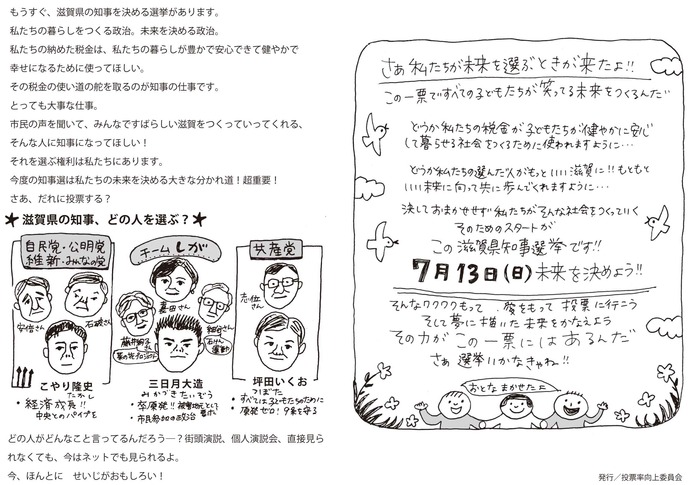 もうすぐ、滋賀県の知事を決める選挙があります。
私たちの暮らしをつくる政治。未来を決める政治。
私たちの納めた税金は、私たちの暮らしが豊かで安心できて健やかで
幸せになるために使ってほしい。
その税金の使い道の舵を取るのが知事の仕事です。
とっても大事な仕事。
市民の声を聞いて、みんなですばらしい滋賀をつくっていってくれる、
そんな人に知事になってほしい！
それを選ぶ権利は私たちにあります。
今度の知事選は私たちの未来を決める大きな分かれ道！超重要！
さあ、だれに投票する？
★滋賀県の知事、どの人を選ぶ？★
自民党・公明党
維新・みんなの党
安倍さん
石破さん
こやり隆史
たかし
・経済成長!!
中央とのパイプを
チームしが
嘉田さん
藤井絢子さん
菜の花プロジェクト
細谷さん
せっけん運動
三日月大造
みかづきたいぞう
・卒原発!! 被害地元として
・市民参加の政治
共産党
志位さん
坪田いくお
つぼた
・すべては子どもたちのために
・原発ゼロ！9条を守る
どの人がどんなこと言ってるんだろう―？街頭演説、個人演説会、直接見ら
れなくても、今はネットでも見られるよ。
今、ほんとに　せいじがおもしろい！
さぁ 私たちが未来を選ぶときが来たよ!!
この一票ですべての子どもたちが笑ってる未来をつくるんだ
どうか私たちの税金が子どもたちが健やかに安心
して暮らせる社会をつくるために使われますように…
どうか私たちの選んだ人がもっといい滋賀に!! もっともっと
いい未来に向って共に歩んでくれますように…
決しておまかせせず私たちがそんな社会をつくっていく
そのためのスタートが
この滋賀県知事選挙です!!
7月13日(日)未来を決めよう!!
そんなワクワクもって、愛をもって 投票に行こう
そして夢に描いた未来をかなえよう
その力がこの一票にはあるんだ
さぁ 選挙いかなきゃね!!
おとな まかせたよ
発行／投票率向上委員会